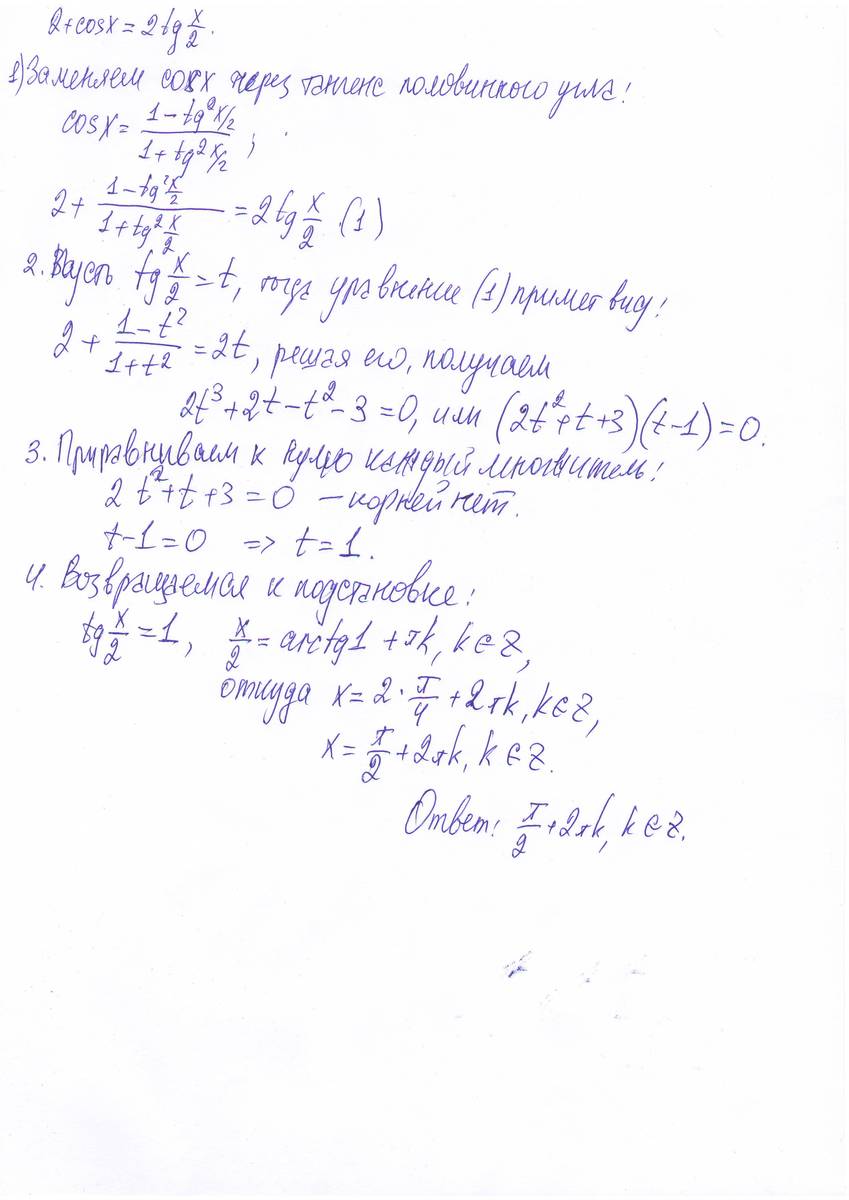 2+cosx=2tg x/2.
1) Заменяем cosx через тангенс половинного угла:
cosx = (1-tg²x/2)/(1+tg²x/2);
2+(1-tg²x/2)/(1+tg²x/2)=2tg x/2. (1)
2. Пусть tg x/2=t, тогда уравнение (1) примет вид:
2+(1-t²)/(1+t²)=2t, решая его, получаем
2t³+2t-t²-3=0, или (2t²+t+3)(t-1)=0.
3. Приравниваем к нулю каждый множитель:
2t²+t+3=0 – корней нет.
t-1=0 => t=1.
4. Возвращаемся к подстановке:
tg x/2=1, x/2=arctg1+πk, k∈Z,
откуда x=2·π/4+2πk, k∈Z,
x=π/2+2πk, k∈Z.
Ответ: π/2+2πk, k∈Z.